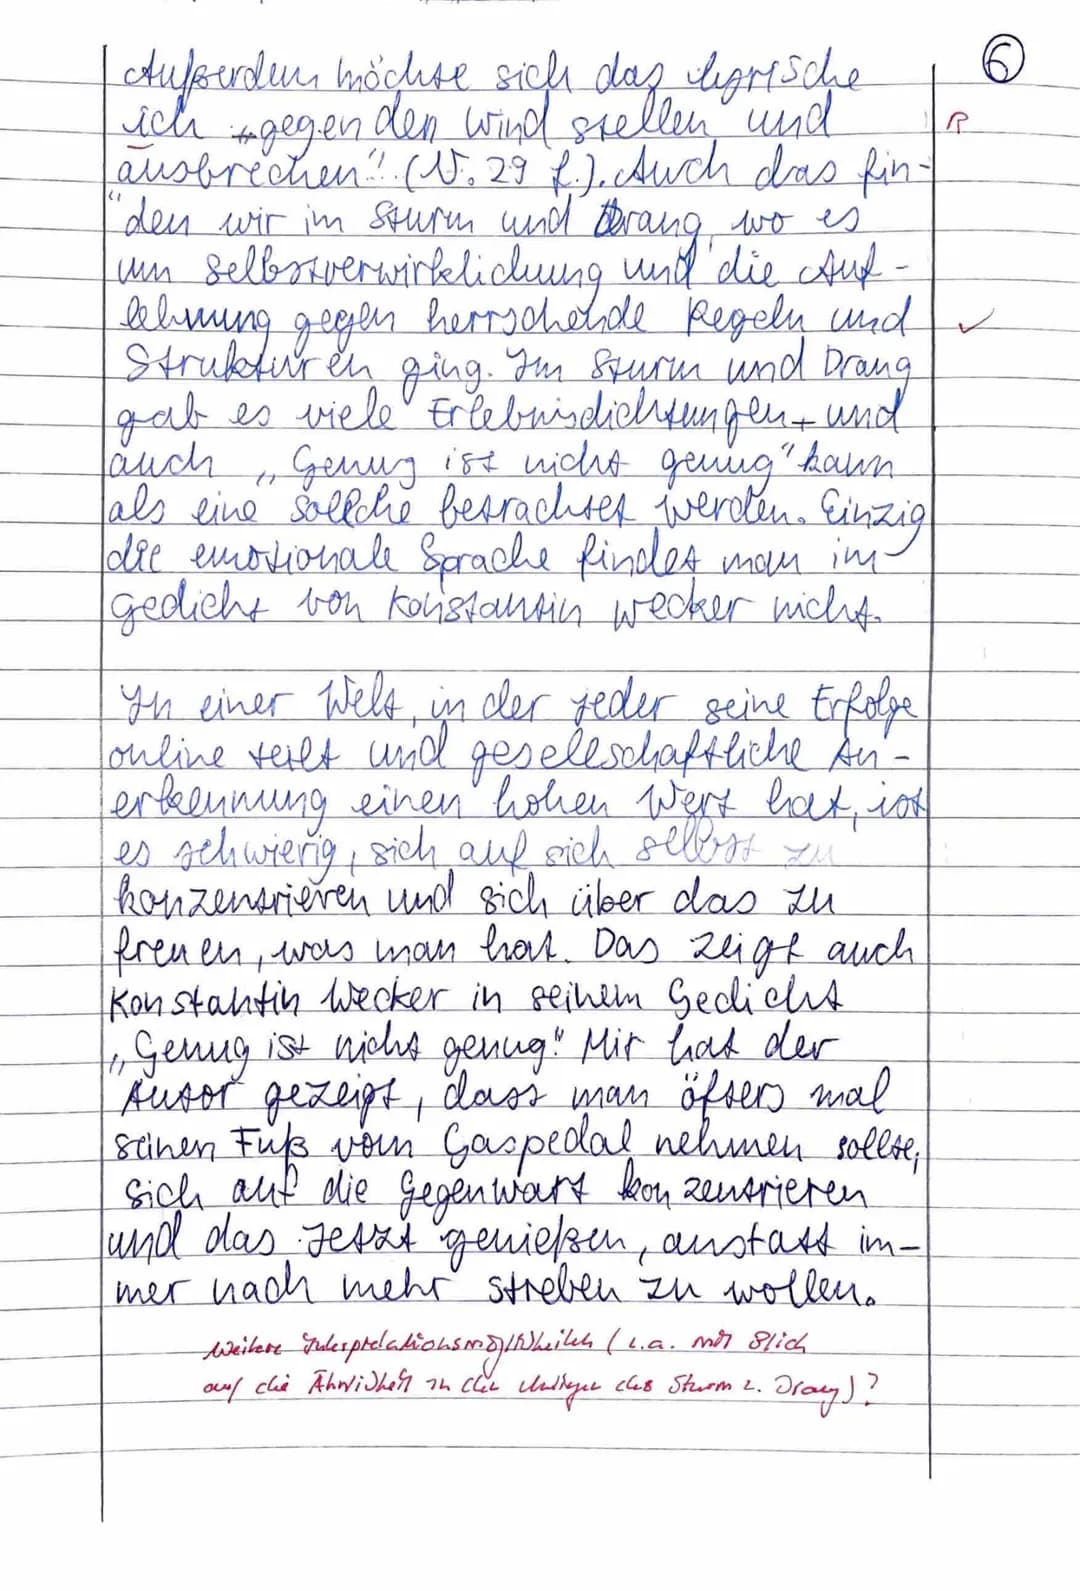 6
Außerdem möchte sich das lyrische
ich „gegen den Wind stellen und
R
ausbrechen“ (V. 29 f.). Auch das fin-
den wir im Sturm und Drang, wo es
um Selbstverwirklichung und die Auf-
lehnung gegen herrschende Regeln und
✓
Strukturen ging. Im Sturm und Drang
gab es viele Erlebnisdichtungen und
auch „Genug ist nicht genug“ kann
als eine sollche betrachtet werden. Einzig
die emotionale Sprache findet man im
Gedicht von Konstantin Wecker nicht.
In einer Welt, in der jeder seine Erfolge
online teilt und gesellschaftliche An-
erkennung einen hohen Wert hat, ist
es schwierig, sich auf sich selbst zu
konzentrieren und sich über das zu
freuen, was man hat. Das zeigt auch
Konstantin Wecker in seinem Gedicht
„Genug ist nicht genug“. Mir hat der
Autor gezeigt, dass man öfters mal
seinen Fuß vom Gaspedal nehmen sollte,
sich auf die Gegenwart konzentrieren
und das Jetzt genießen, anstatt im-
mer nach mehr streben zu wollen.
Weitere Interpretationsmöglichkeiten ( mit Blich
auf die Ähnlichkeit zu den des Sturm u. Drang)?